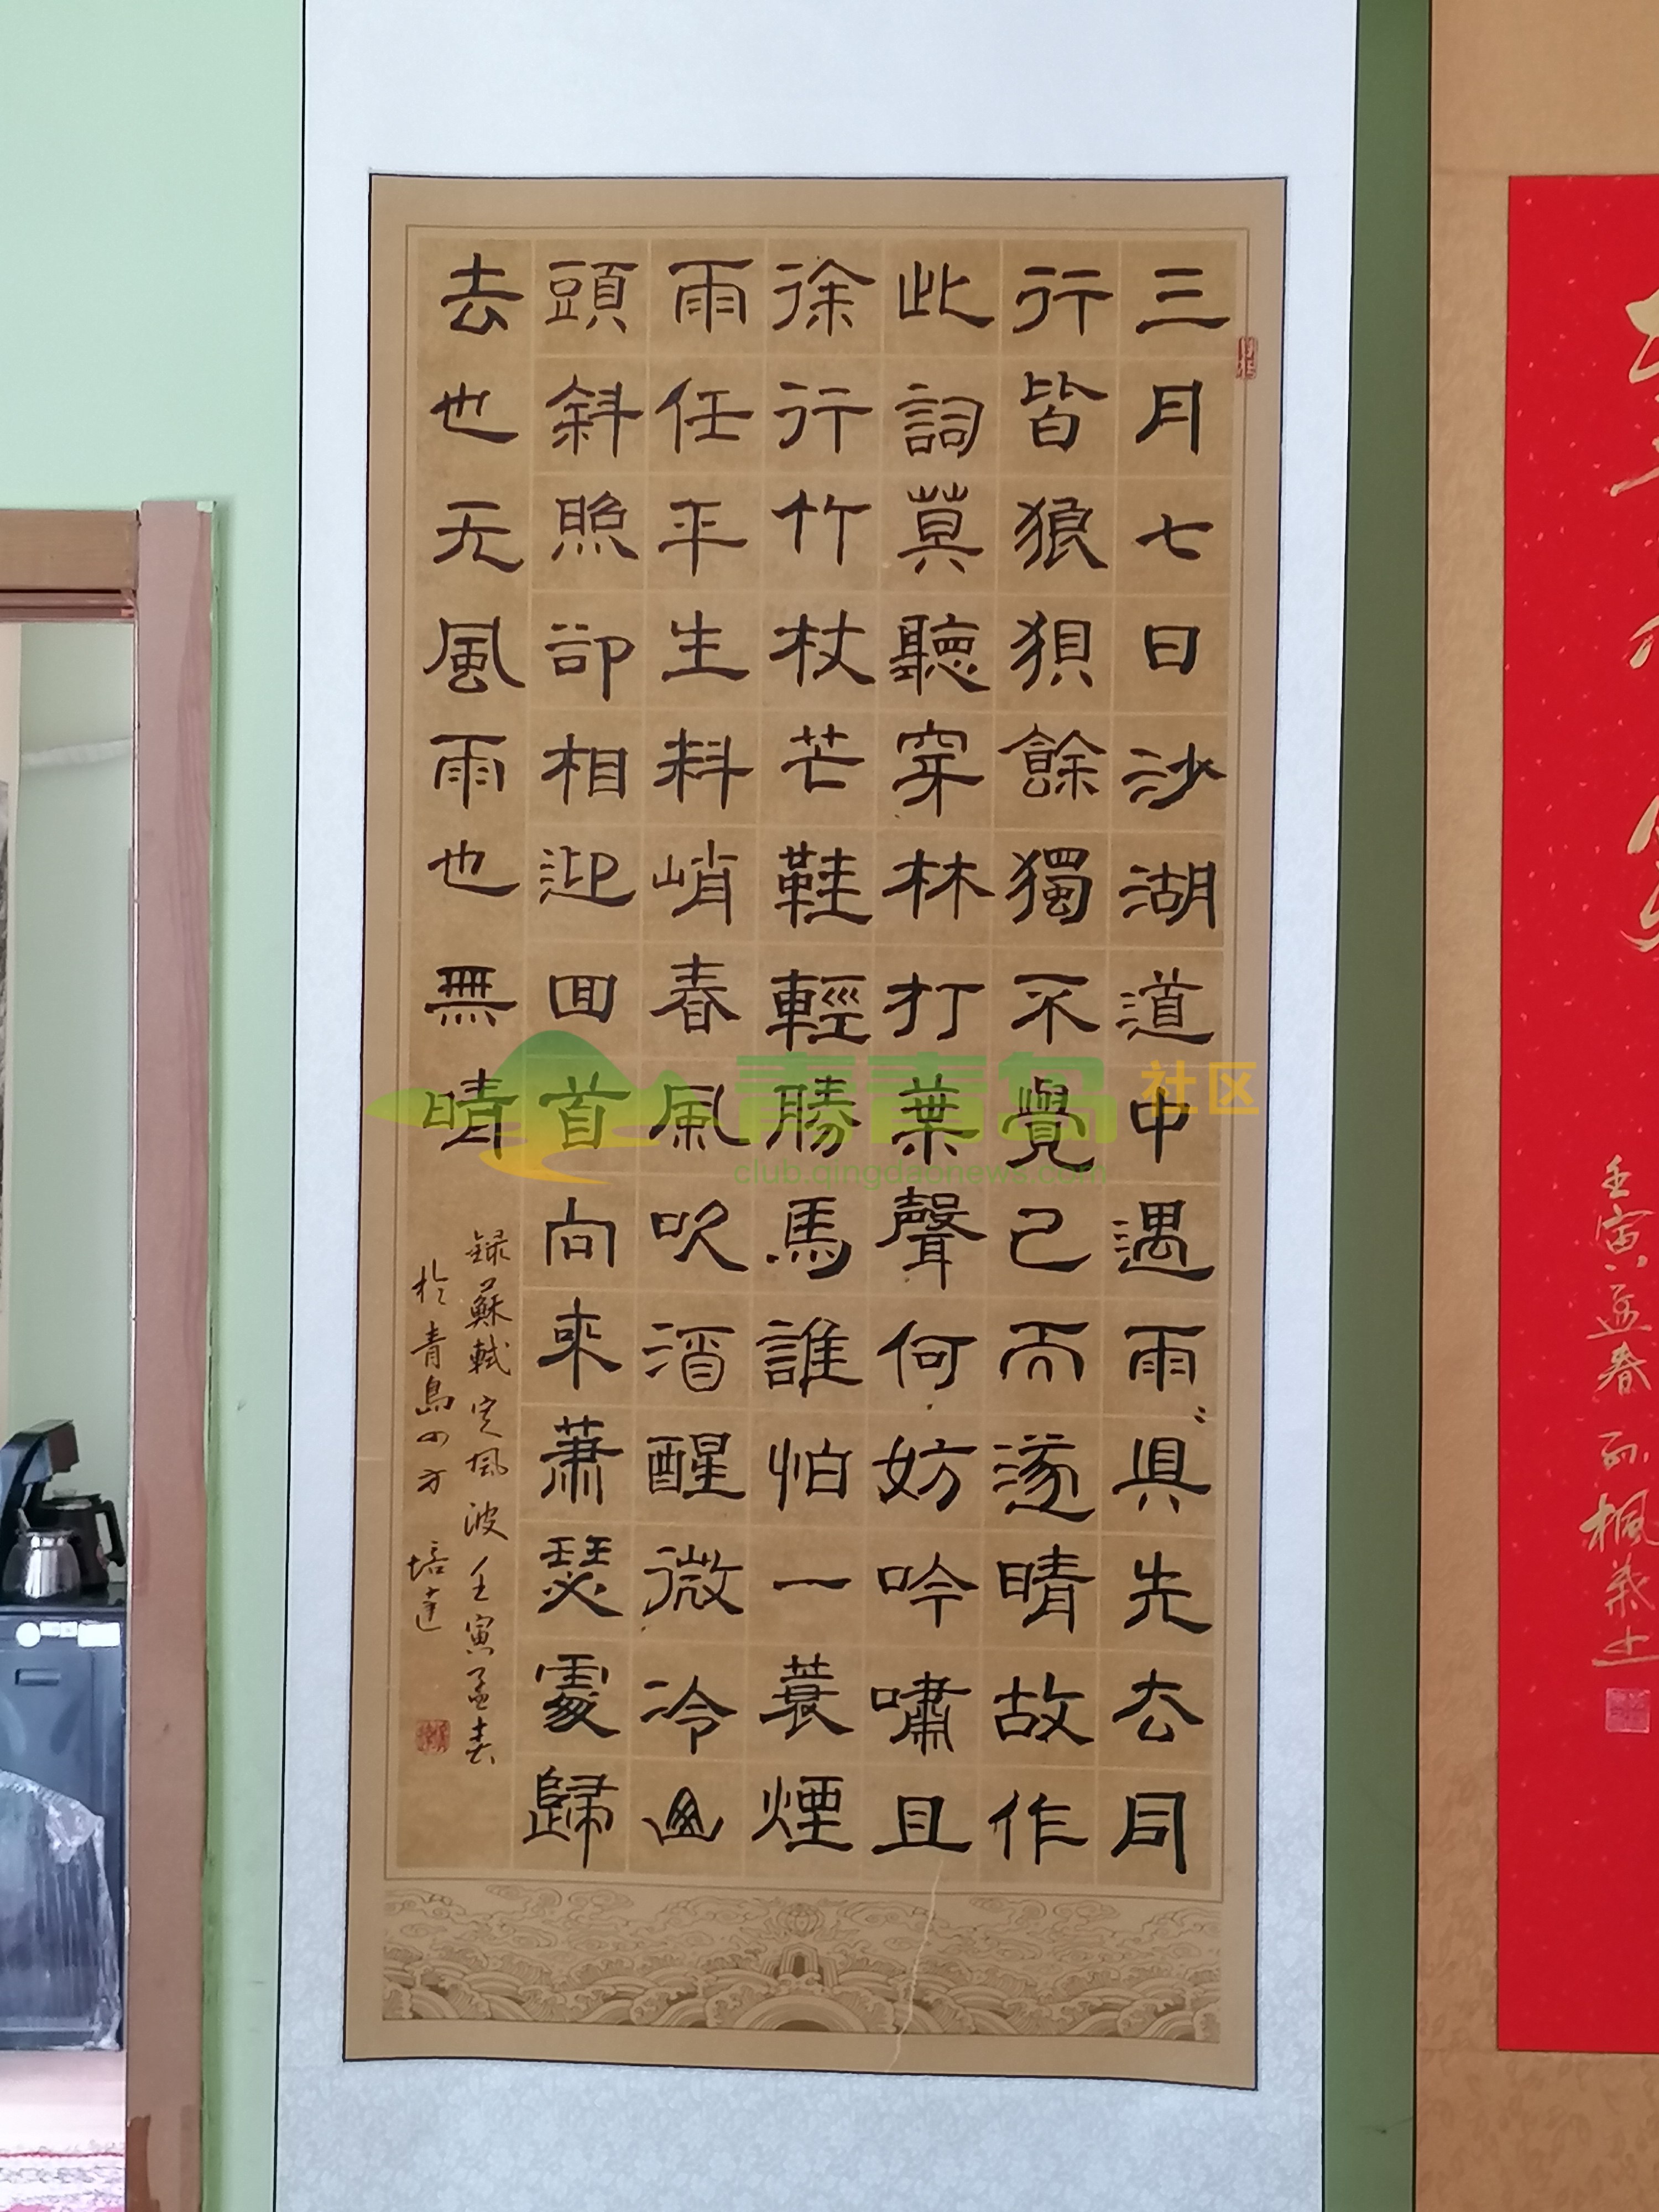 三月七日沙湖道中遇雨〻具先去同
行皆狼狽餘獨不覺已而遂晴故作
此詞莫聽穿林打葉聲何妨吟嘯且
徐行竹杖芒鞋輕勝馬誰怕一蓑煙
雨任平生料峭春風吹酒醒微冷山
頭斜照卻相迎回首向來蕭瑟處歸
去也无風雨也無晴
録蘇軾定風波壬寅孟春
於青島四方 培達
壬寅孟春 孫楓
青青岛社区
club.qingdaonews.com